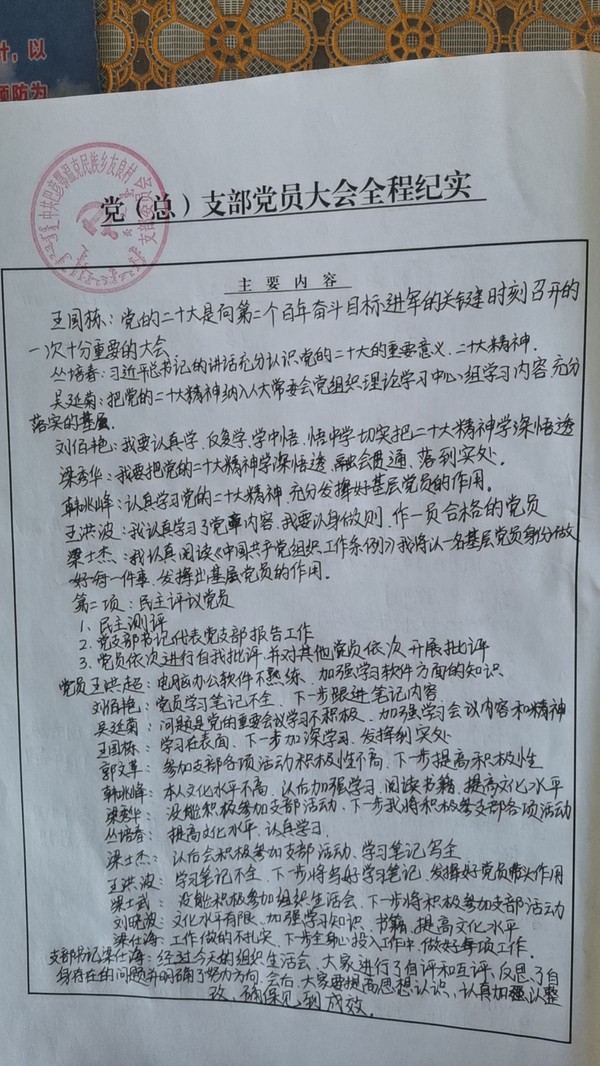 计，以
预防为
中共巴彦鄂温克民族乡友良村
支部委员会
党（总）支部党员大会全程纪实
主要内容
王国栋：党的二十大是向第二个百年奋斗目标进军的关键时刻召开的
一次十分重要的大会
丛培春：习近平总书记的讲话充分认识党的二十大的重要意义、二十大精神．
吴延菊：把党的二十大精神纳入人大常委会党组织理论学习中心组学习内容充分
落实的基层．
刘佰艳：我要认真学、反复学、学中悟、悟中学切实把二十大精神学深悟透
梁秀华：我要把党的二十大精神学深悟透、融会贯通、落到实处．
韩兆峰：认真学习党的二十大精神 充分发挥好基层党员的作用．
王洪波：我认真学习了党章内容、我要认身做则、作一员合格的党员
梁士杰：我认真阅读《中国共产党组织工作条例》我将认一名基层党员身份做
好每一件事、发挥出基层党员的作用．
第二项：民主评议党员
1. 民主测评
2. 党支部书记代表党支部报告工作
3. 党员依次进行自我批评、并对其他党员依次开展批评
党员王洪超：电脑办公软件不熟练、加强学习软件方面的知识
刘佰艳：党员学习笔记不全、下一步跟进笔记内容
吴延菊：问题是党的重要会议学习不积极、加强学习会议内容和精神
王国栋：学习在表面、下一步加深学习、发挥到实处
郭文革：参加支部各项活动积极性不高、下一步提高积极性
韩兆峰：本人文化水平不高、认后加强学习、阅读书籍、提高文化水平
梁秀华：没能积极参加支部活动、下一步我将积极参支部各项活动
丛培春：提高文化水平、认真学习．
梁士杰：认后会积极参加支部活动、学习笔记写全
王洪波：学习笔记不全、下步将当好学习笔记、发挥好党员带头作用
梁士武：没能积极参加组织生活会、下一步将积极参加支部活动
刘晓波：文化水平有限、加强学习知识、书籍、提高文化水平
梁仕海：工作做的不扎实、下一步全身心投入工作中、做好每项工作．
支部书记梁仕海：经过今天的组织生活会、大家进行了自评和互评、反思了自
身存在的问题并明确了努力方向、会后、大家要提高思想认识、认真加强认整
改、确保见到成效。